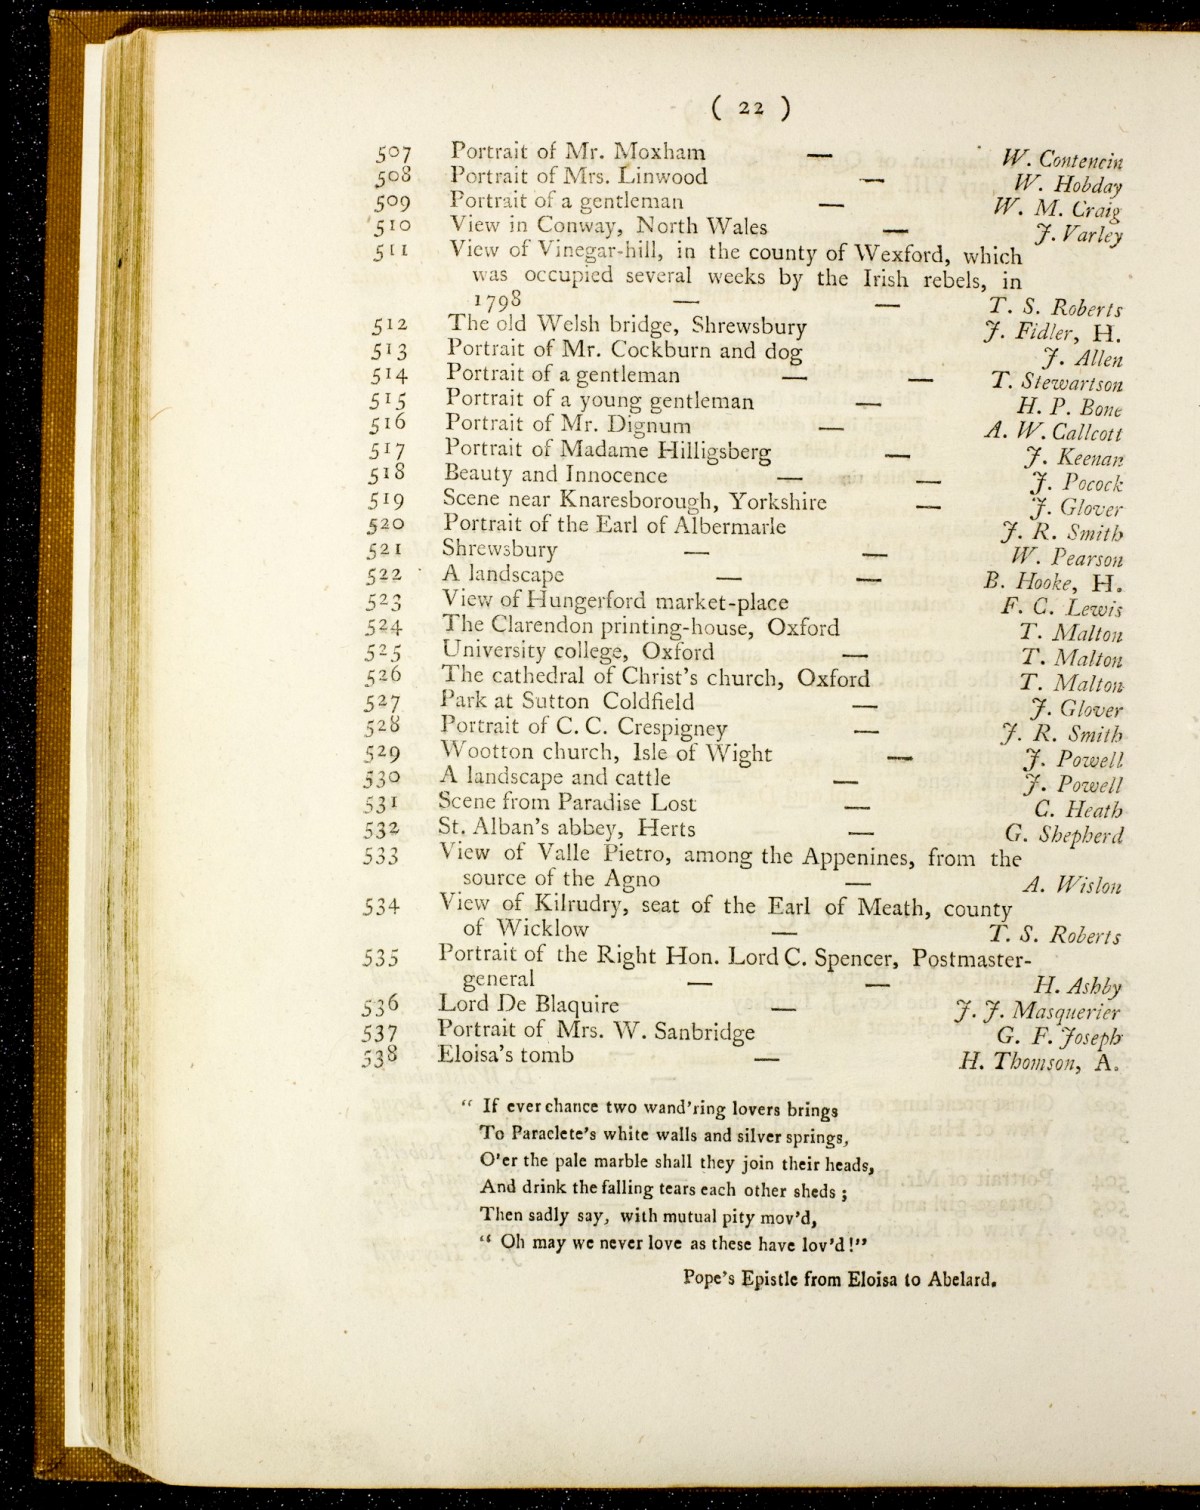 ( 22 )
507 Portrait of Mr. Moxham — W. Contencin
508 Portrait of Mrs. Linwood — W. Hobday
509 Portrait of a gentleman — W. M. Craig
510 View in Conway, North Wales — J. Varley
511 View of Vinegar-hill, in the county of Wexford, which
was occupied several weeks by the Irish rebels, in
1798 — — T. S. Roberts
512 The old Welsh bridge, Shrewsbury J. Fidler, H.
513 Portrait of Mr. Cockburn and dog J. Allen
514 Portrait of a gentleman — — T. Stewartson
515 Portrait of a young gentleman — H. P. Bone
516 Portrait of Mr. Dignum — A. W. Callcott
517 Portrait of Madame Hilligsberg — J. Keenan
518 Beauty and Innocence — — J. Pocock
519 Scene near Knaresborough, Yorkshire — J. Glover
520 Portrait of the Earl of Albermarle J. R. Smith
521 Shrewsbury — — W. Pearson
522 A landscape — — B. Hooke, H.
523 View of Hungerford market-place F. C. Lewis
524 The Clarendon printing-house, Oxford T. Malton
525 University college, Oxford — T. Malton
526 The cathedral of Christ's church, Oxford T. Malton
527 Park at Sutton Coldfield — J. Glover
528 Portrait of C. C. Crespigney — J. R. Smith
529 Wootton church, Isle of Wight — J. Powell
530 A landscape and cattle — J. Powell
531 Scene from Paradise Lost — C. Heath
532 St. Alban's abbey, Herts — G. Shepherd
533 View of Valle Pietro, among the Appenines, from the
source of the Agno — A. Wislon
534 View of Kilrudry, seat of the Earl of Meath, county
of Wicklow — T. S. Roberts
535 Portrait of the Right Hon. Lord C. Spencer, Postmaster-
general — — H. Ashby
536 Lord De Blaquire — J. J. Masquerier
537 Portrait of Mrs. W. Sanbridge G. F. Joseph
538 Eloisa's tomb — H. Thomson, A.
“ If ever chance two wand'ring lovers brings
To Paraclete's white walls and silver springs,
O'er the pale marble shall they join their heads,
And drink the falling tears each other sheds ;
Then sadly say, with mutual pity mov'd,
“ Oh may we never love as these have lov'd !”
Pope's Epistle from Eloisa to Abelard.